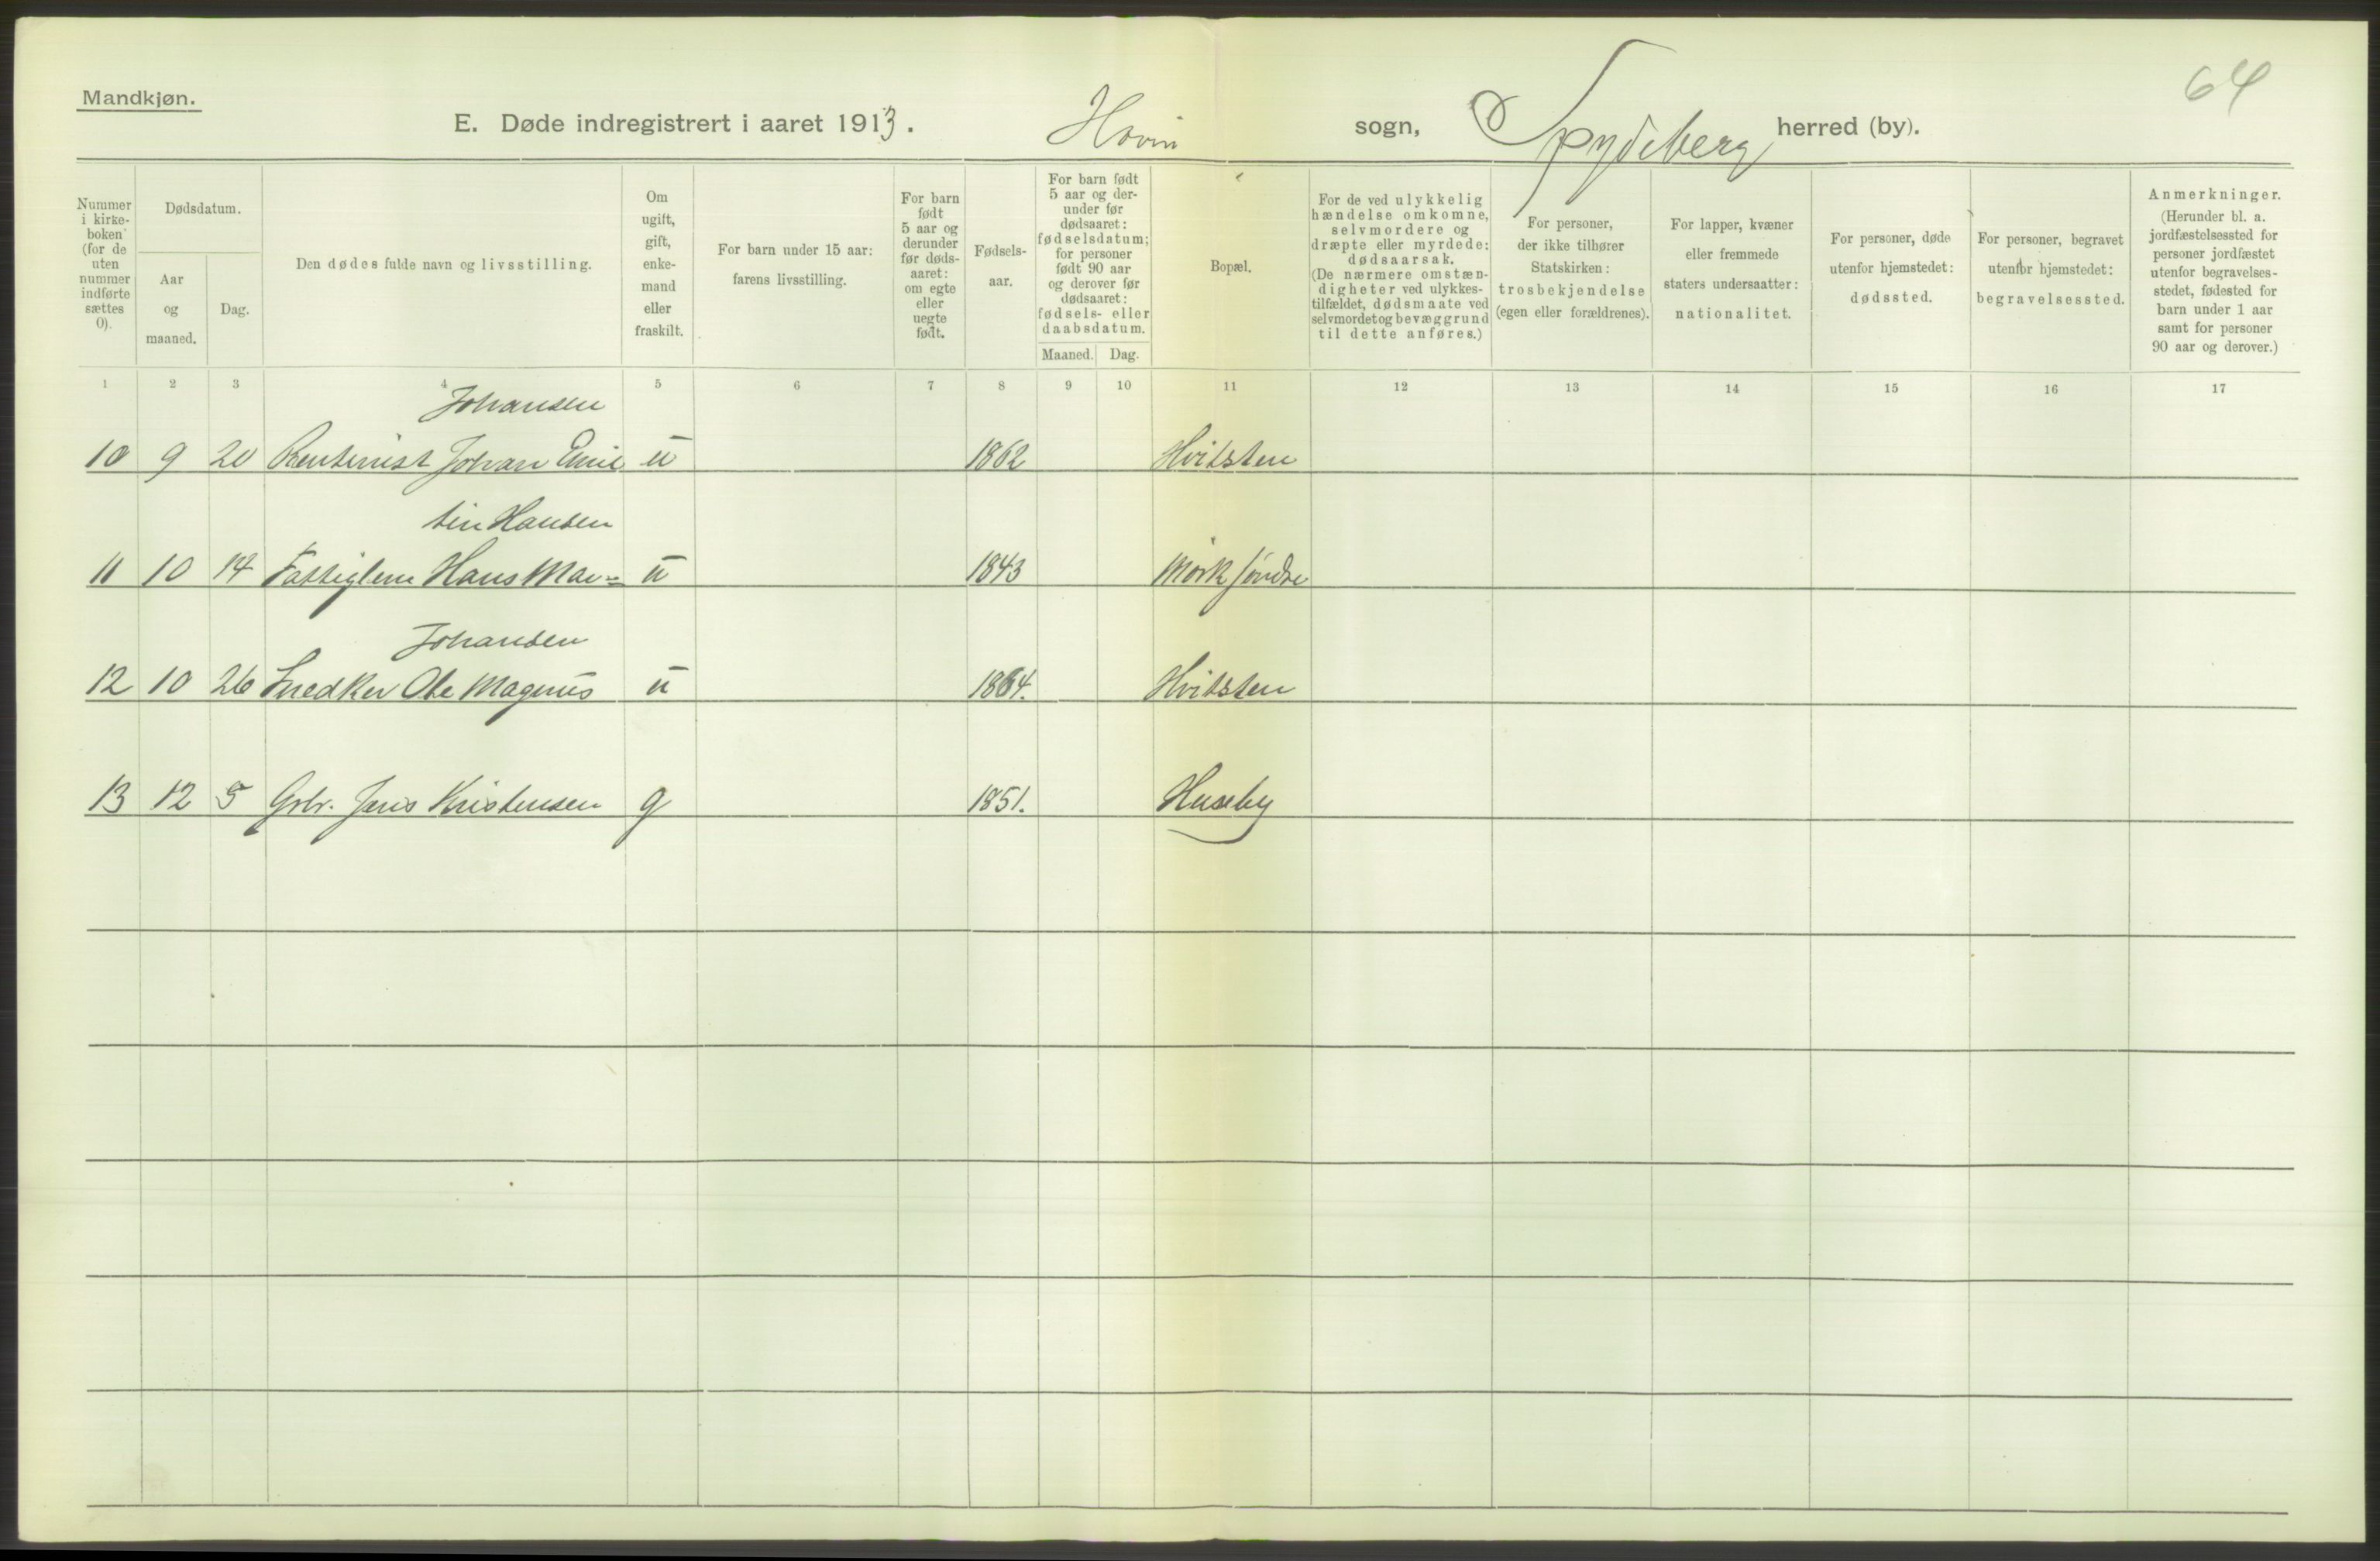 64
Mandkjøn.
E. Døde indregistrert i aaret 1913. Hovin sogn, Spydeberg herred (by).
Nummer i kirke- boken (for de uten nummer indførte sættes 0).
Dødsdatum.
Aar og maaned.
Dag.
Den dødes fulde navn og livsstilling.
Om ugift, gift, enke- mand eller fraskilt.
For barn under 15 aar: farens livsstilling.
For barn født 5 aar og derunder før døds- aaret: om egte eller uegte født.
Fødsels- aar.
For barn født 5 aar og der- under før dødsaaret: fødselsdatum; for personer født 90 aar og derover før dødsaaret: fødsels- eller daabsdatum.
Maaned. Dag.
Bopæl.
For de ved ulykkelig hændelse omkomne, selvmordere og dræpte eller myrdede: dødsaarsak. (De nærmere omstæn- digheter ved ulykkes- tilfældet, dødsmaate ved selvmordet og bevæggrund til dette anføres.)
For personer, der ikke tilhører Statskirken: trosbekjendelse (egen eller forældrenes).
For lapper, kvæner eller fremmede staters undersaatter: nationalitet.
For personer, døde utenfor hjemstedet: dødssted.
For personer, begravet utenfor hjemstedet: begravelsessted.
Anmerkninger. (Herunder bl. a. jordfæstelsessted for personer jordfæstet utenfor begravelses- stedet, fødested for barn under 1 aar samt for personer 90 aar og derover.)
1 2 3 4 5 6 7 8 9 10 11 12 13 14 15 16 17
Johansen
10 9 20 Rentenist Johan Emil u 1862 Hvitsten
tin Hansen
11 10 14 Fattiglem Hans Mar= u 1843 Mørk søndre
Johansen
12 10 26 Snedker Ole Magnus u 1864. Hvitsten
13 12 5 Grbr. Jens Kristensen g 1851. Huseby